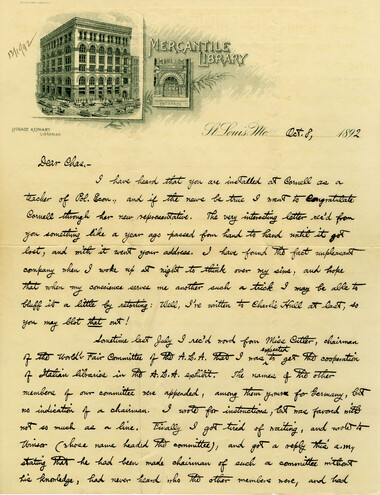 12/10/92
MERCANTILE
LIBRARY
ENTRANCE
HORACE KEPHART
LIBRARIAN
St. Louis, Mo. Oct. 8, 1892
Dear Chas.,-
I have heard that you are installed at Cornell as a
teacher of Pol. Econ., and if the news be true I want to congratulate
Cornell through her new representative. The very interesting letter rec'd from
you something like a year ago passed from hand to hand until it got
lost, and with it went your address. I have found the fact unpleasant
company when I woke up at night to think over my sins, and hope
that when my conscience serves me another such a trick I may be able to
bluff it a little by retorting: Well, I've written to Charlie Hull at last, so
you may blot that out!
Sometime last July I rec'd word from Miss Cutler, chairman
of the World's Fair Committee of the A.L.A. that I was expected to get the cooperation
of Italian libraries in the A.L.A. exhibit. The names of the other
members of our committee were appended, among them yours for Germany, but
no indication of a chairman. I wrote for instructions, but was favored with
not so much as a line. Finally, I got tired of waiting, and wrote to
Winsor (whose name headed the committee), and got a reply this a.m.,
stating that he had been made chairman of such a committee without
his knowledge, had never heard who the other members were, and had